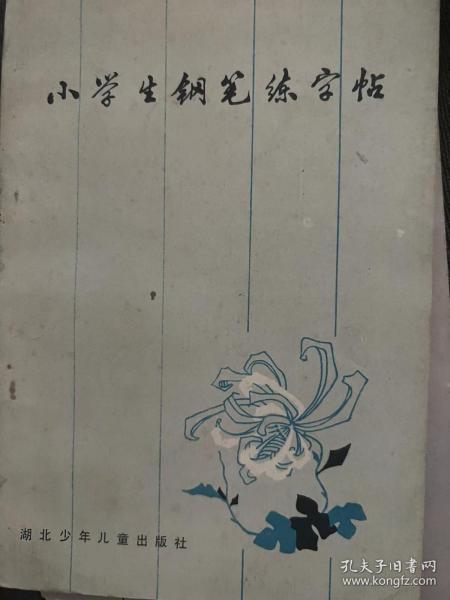 小学生钢笔练字帖
湖北少年儿童出版社
孔夫子旧书网
www.kongfz.com